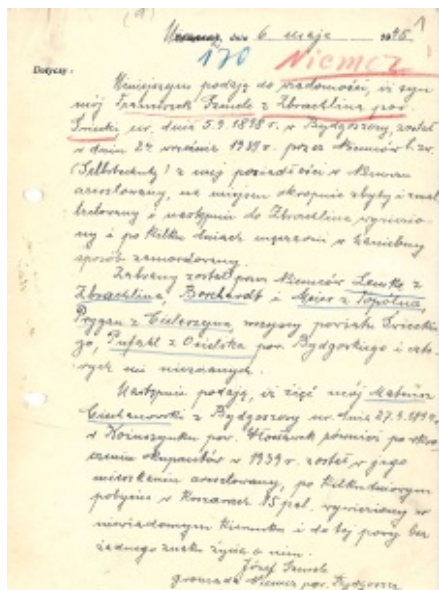 dnia 6 maja 1945
170 Niemcz
Dotyczy:
Niniejszym podaję do wiadomości, iż syn
mój Franciszek z Zbrachlina pow.
Świecki ur. dnia 5.9.1898 r. w Bydgoszczy, został
w dniu 24 września 1939 r. przez Niemców t. zw.
(Selbstschutz) z mej posiadłości w Niemczu
aresztowany, na miejscu okropnie zbity i zmal-
tretowany i następnie do Zbrachlina wywiezio-
ny i po kilku dniach męczarni w haniebny
sposób zamordowany.
Zabrany został przez Niemców Lemke z
Zbrachlina, Borchardt i Meier z Topolna,
Prygan z wszyscy powiatu Świeckie-
go, z Osielska pow. Bydgoskiego i
rych mi nieznanych.
Następnie podaję, iż zięć mój Mateusz
Ciechanowski z Bydgoszczy ur. dnia
w pow. Włocławek również po wkro-
czeniu okupantów w 1939 r. został w jego
mieszkaniu aresztowany, po kilkudniowym
pobycie w koszarach 15 pal. wywieziony w
niewiadomym kierunku i do tej pory bez
żadnego znaku życia o nim.
Józef
gromada Niemcz pow. Bydgoszcz